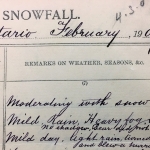 SNOWFALL.
4.3.0
tario February, 190
REMARKS ON WEATHER, SEASONS, &c.
Moderating with snow
Mild, Rain, Heavy fog
No change
Mild day, light rain,
and